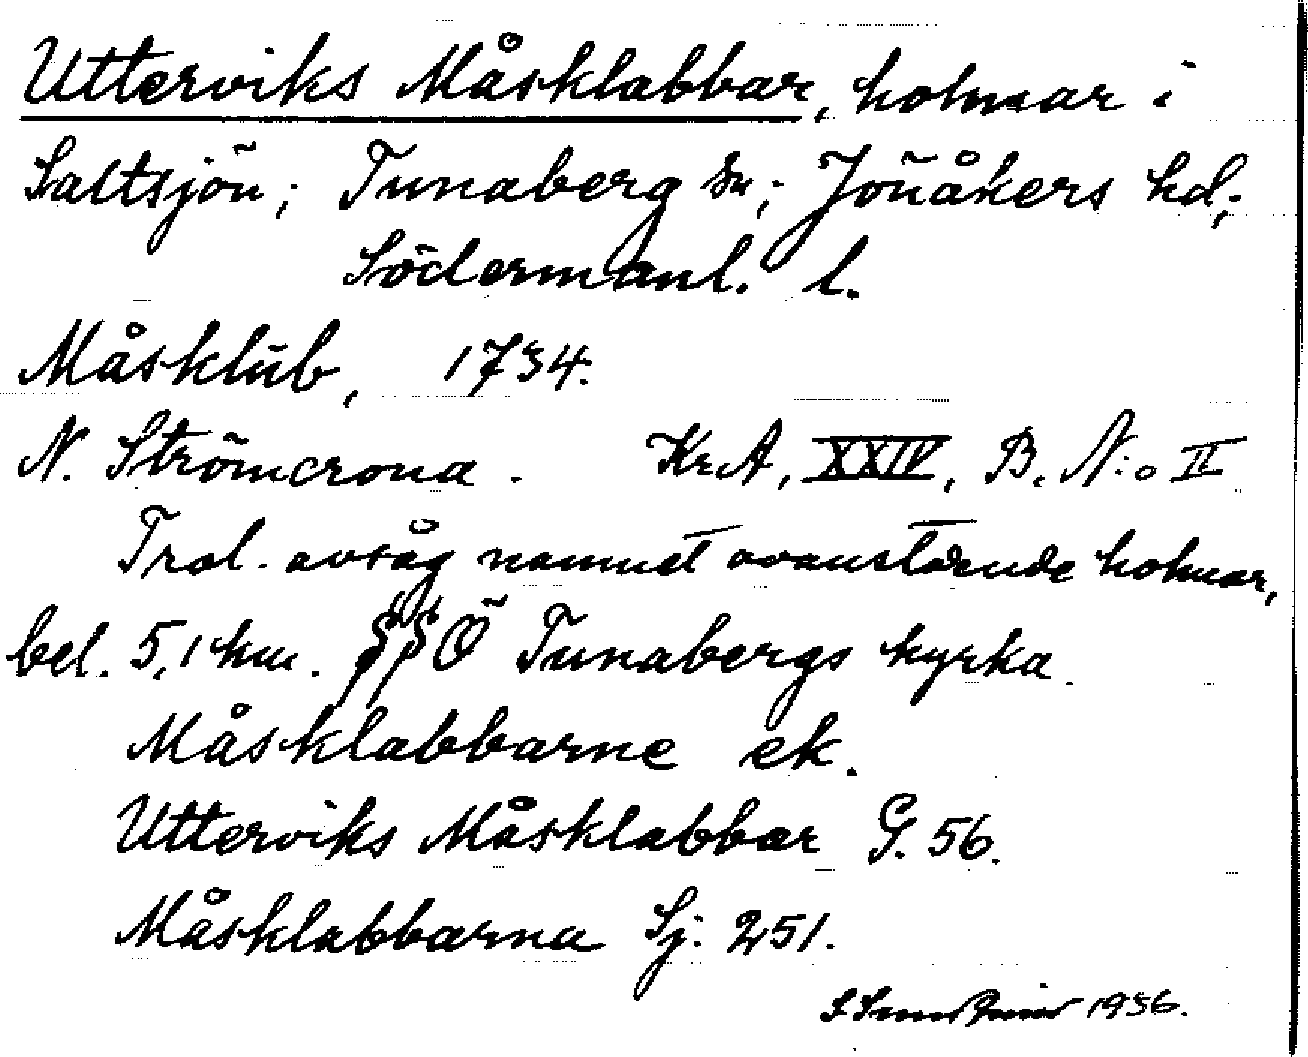 Utterviks Måsklabbar, holmar i
Saltsjön; Tunaberg sn; Jönåkers hd;
Södermanl. l.
Måsklub, 1734.
N. Strömcrona. Kr.A, XXIV, B. N:o II
Trol. avsåg namnet ovanstående holmar,
bel. 5,1 km. SSÖ Tunabergs kyrka
Måsklabbarne ek.
Utterviks Måsklabbar G. 56.
Måsklabbarna Sj. 251.
1936.